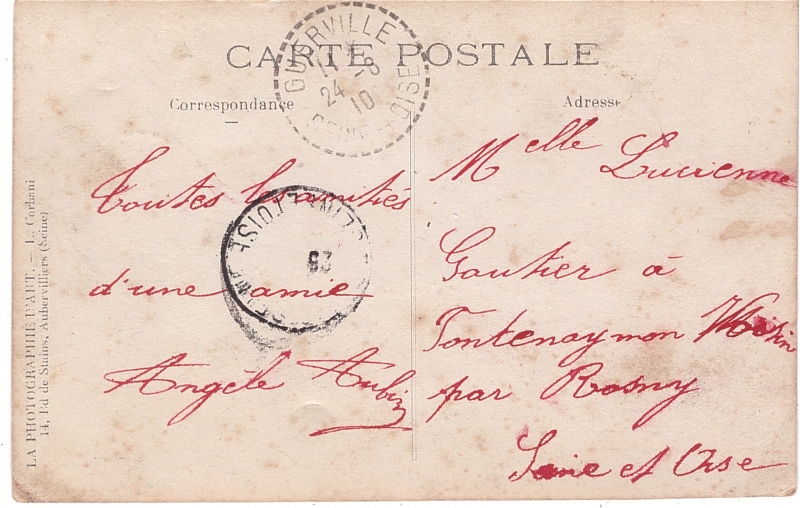 CARTE POSTALE
GUERVILLE
24 -8
10
SEINE-ET-OISE
Correspondance
Adresse
Toutes les amitiés
d'une amie
Angèle
Melle Lucienne
Gautier à
Fontenay mon Voisin
par Rosny
Seine et Oise
SEINE-ET-OISE
23
LA PHOTOGRAPHIE D'ART. — L. Corbani
14, Bd de Stains, Aubervilliers (Seine)